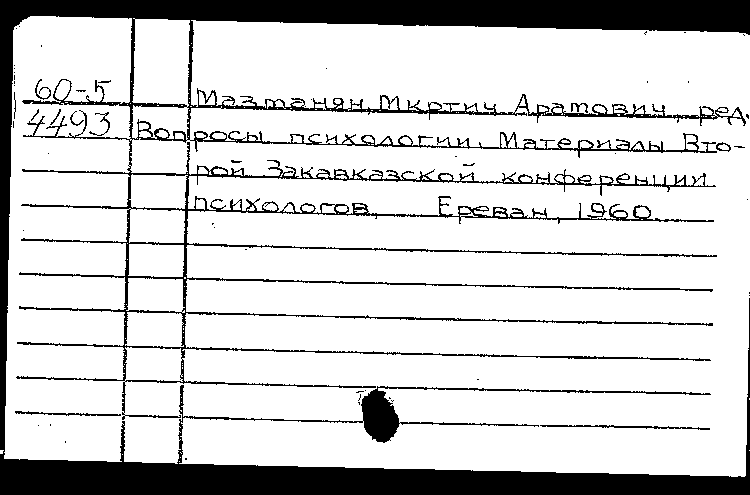 60-5 Мазманян, Мкртич Арамович, ред.
4493 Вопросы психологии. Материалы Вто-
рой Закавказской конференции
психологов. Ереван, 1960.